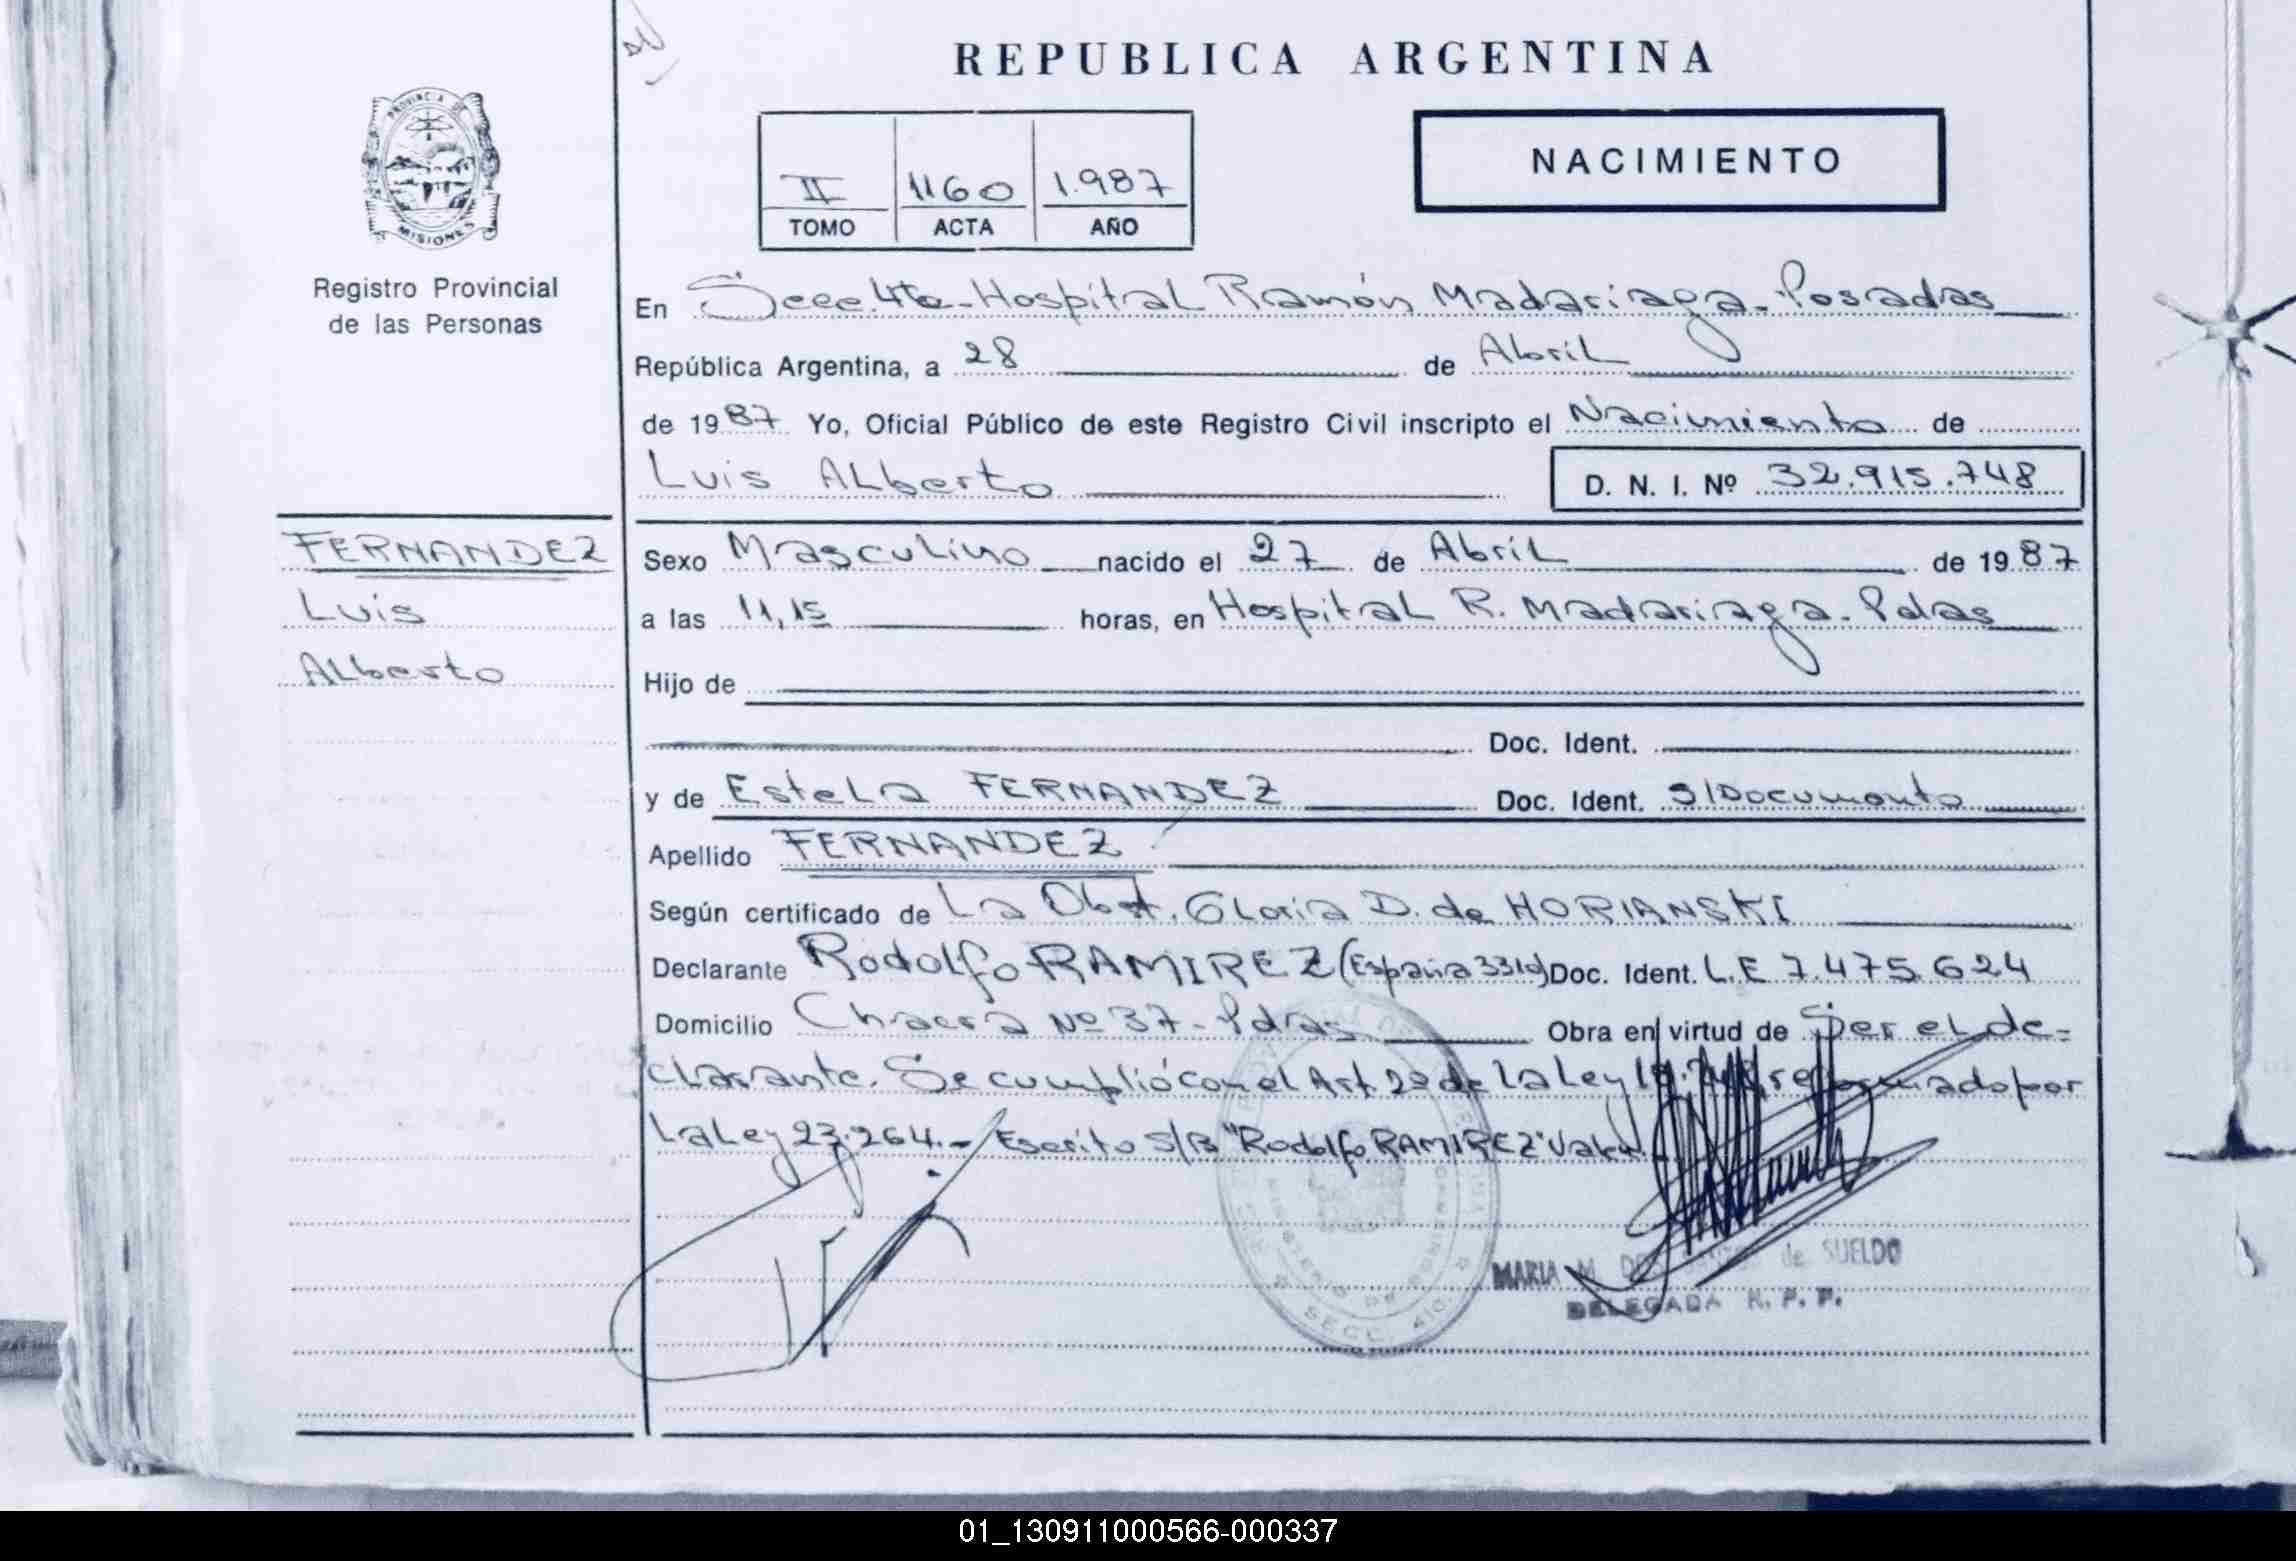 REPUBLICA ARGENTINA
PROVINCIA DE
MISIONES
Registro Provincial
de las Personas
II 1160 1.987
TOMO ACTA AÑO
NACIMIENTO
En Secc. 4ta-Hospital Ramón Madariaga-Posadas
República Argentina, a 28 de Abril
de 1987 Yo, Oficial Público de este Registro Civil inscripto el Nacimiento de
Luis Alberto D. N. I. Nº 32.915.748
FERNANDEZ
Luis
Alberto
Sexo Masculino nacido el 27 de Abril de 1987
a las 11,15 horas, en Hospital R. Madariaga-Pdas
Hijo de
Doc. Ident.
y de Estela FERNANDEZ Doc. Ident. S/Documento
Apellido FERNANDEZ
Según certificado de La Obst. Gloria D. de HORIANSKI
Declarante Rodolfo RAMIREZ (España 3310) Doc. Ident. L.E 7.475.624
Domicilio Chacra Nº 37-Pdas Obra en virtud de Ser el de=
clarante. Se cumplió con el Art. 2º de la Ley reformado por
La Ley 23.264.- Escrito S/B "Rodolfo RAMIREZ" Vale.
MARIA M. de SUELDO
DELEGADA R. P. P.
SECC. 4ta.
01_130911000566-000337